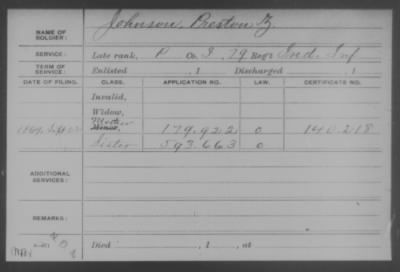 NAME OF SOLDIER: Johnson, Preston Z.
SERVICE: Late rank, P Co. I, 79 Reg't Ind. Inf
TERM OF SERVICE: Enlisted , 1 Discharged , 1
DATE OF FILING. CLASS. APPLICATION NO. LAW. CERTIFICATE NO.
Invalid,
Widow,
Mother
Minor, 179,922 0 140,218
Sister 593,663 0
ADDITIONAL SERVICES:
REMARKS:
Died , 1 , at